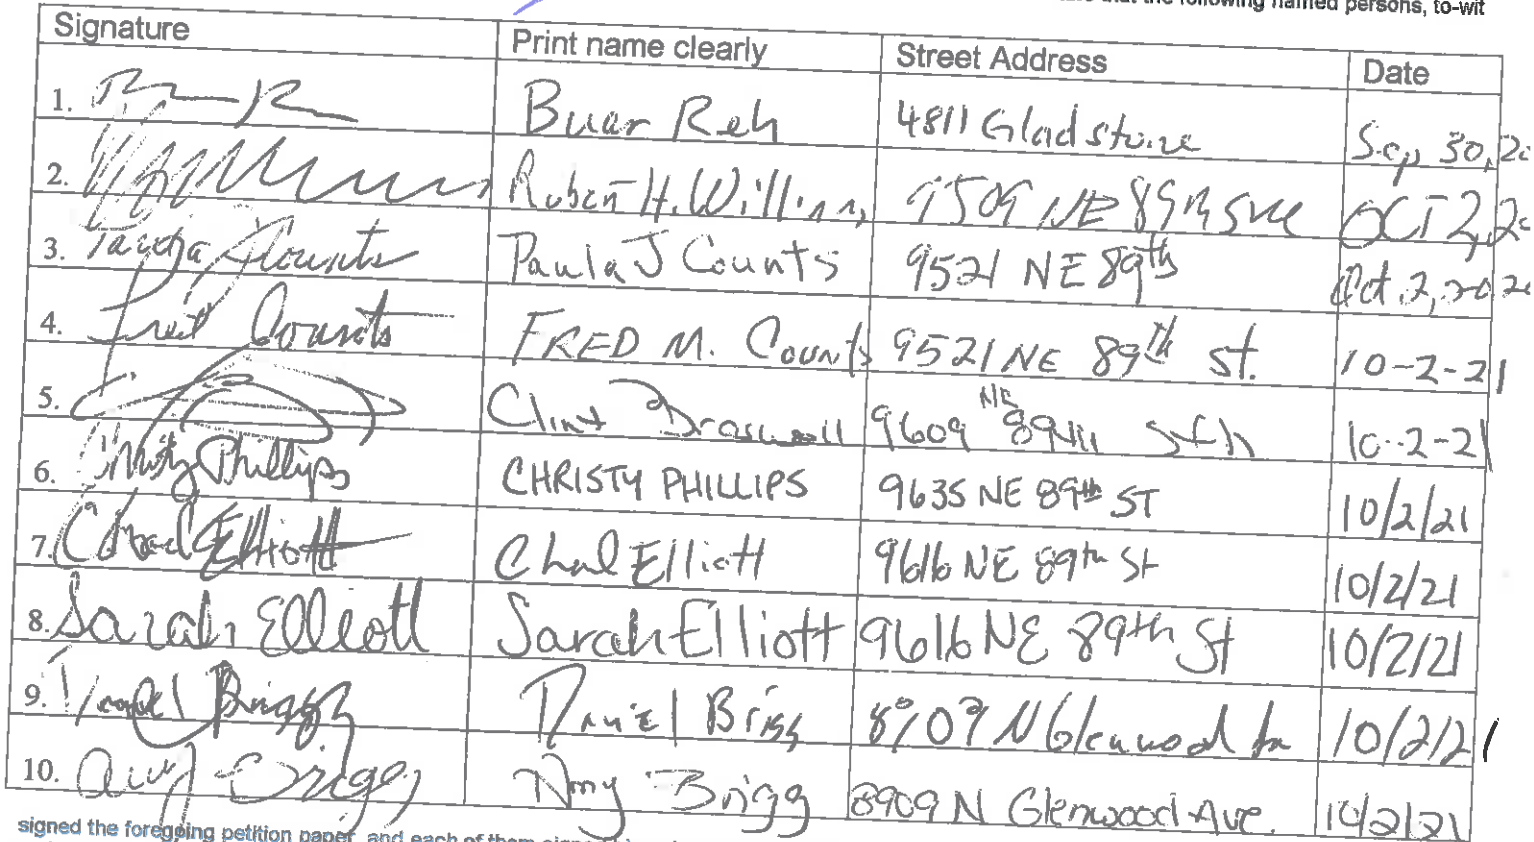 that the following named persons, to-wit
Signature Print name clearly Street Address Date
1. Buar Reh 4811 Gladstone Sep 30, 20
2. Robert H. Williams 9509 NE 89th OCT 2, 20
3. Paula J Counts Paula J Counts 9521 NE 89th Oct 2, 2020
4. Fred Counts FRED M. Counts 9521 NE 89th St. 10-2-21
5. Clint Braswell 9609 NE 89th 10-2-21
6. Christy Phillips CHRISTY PHILLIPS 9635 NE 89th ST 10/2/21
7. Chad Elliott Chad Elliott 9616 NE 89th St 10/2/21
8. Sarah Elliott Sarah Elliott 9616 NE 89th St 10/2/21
9. Daniel Briggs Daniel Brigg N Glenwood 10/2/21
10. Amy Briggs Amy Brigg 8909 N Glenwood Ave. 10/2/21
signed the foregoing petition paper, and each of them signed